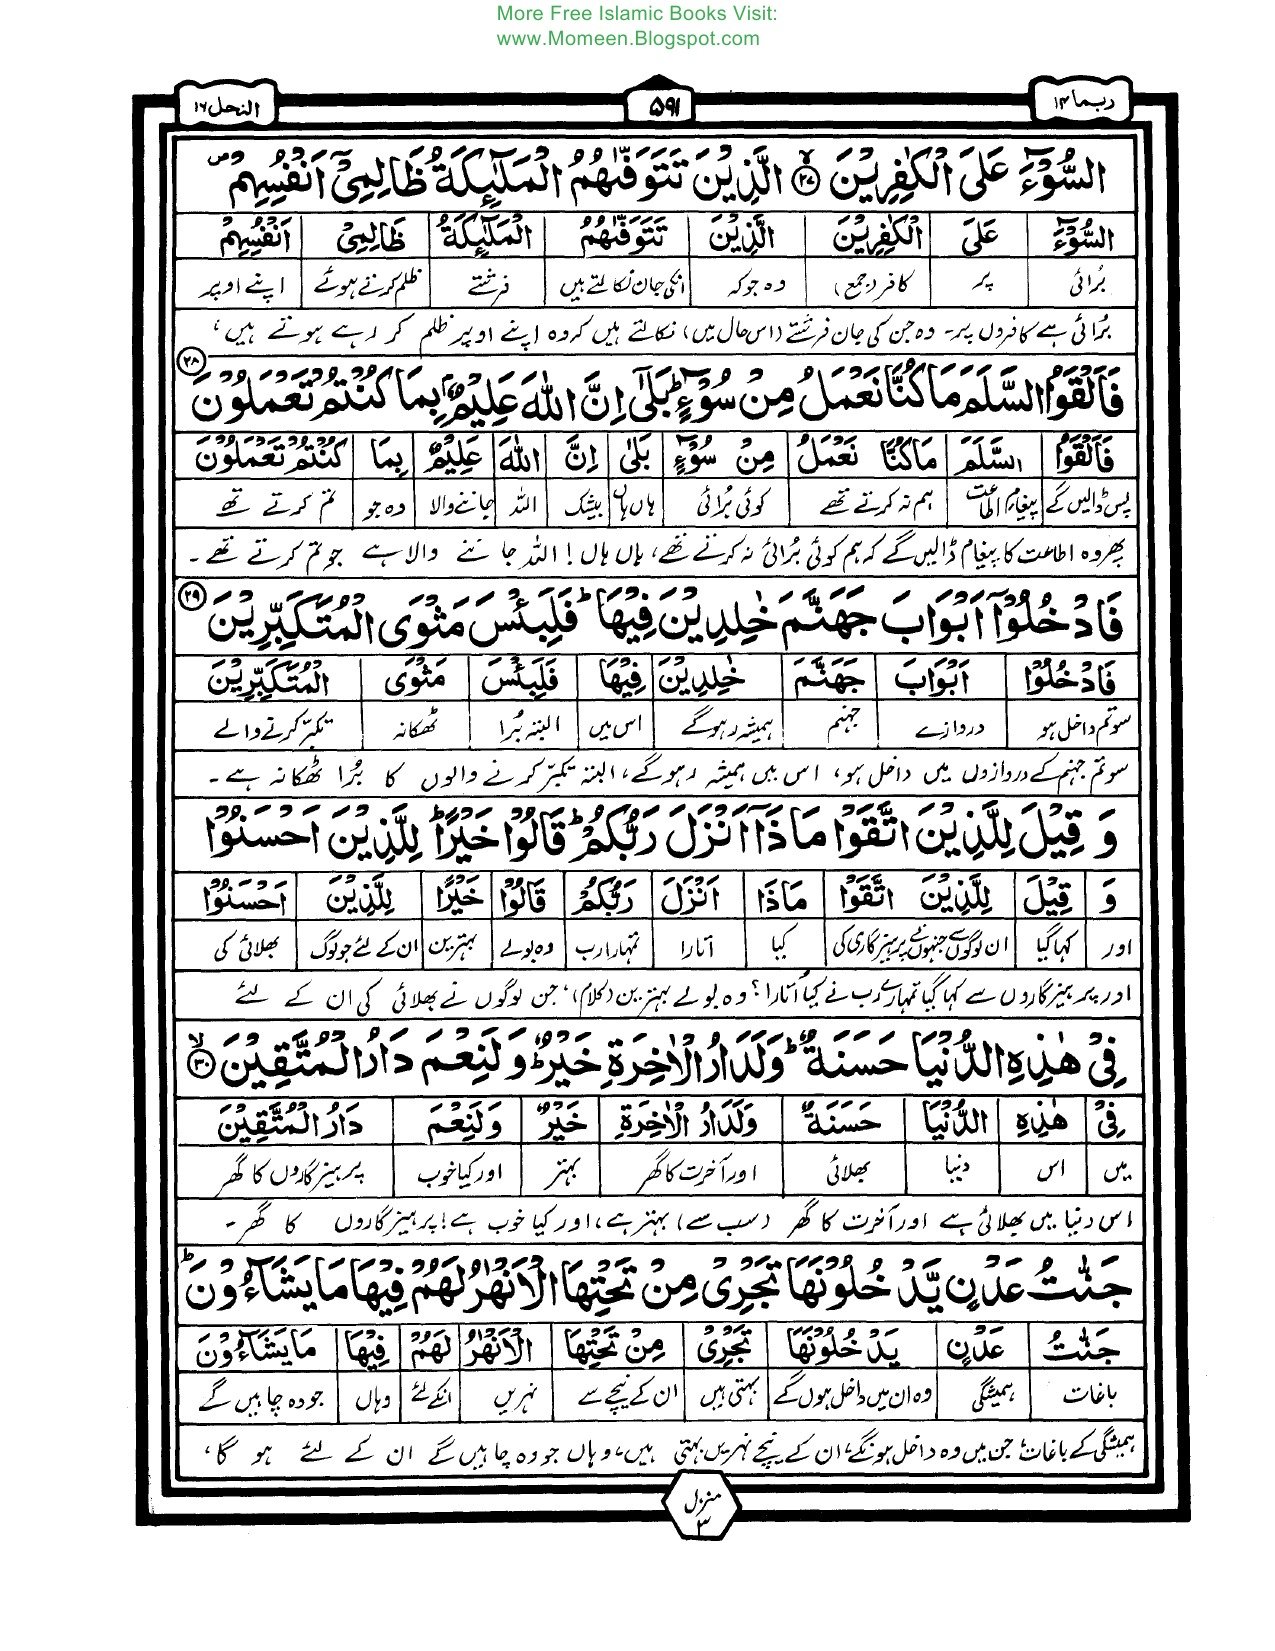 More Free Islamic Books Visit:
www.Momeen.Blogspot.com
ربما ۱۴
۵۹۱
النحل ۱۶
السُّوْٓءَ عَلَى الْكٰفِرِيْنَ ۙ۲۷ الَّذِيْنَ تَتَوَفّٰىهُمُ الْمَلٰٓئِكَةُ ظَالِمِيْٓ اَنْفُسِهِمْ ۪
السُّوْٓءَ عَلَى الْكٰفِرِيْنَ الَّذِيْنَ تَتَوَفّٰىهُمُ الْمَلٰٓئِكَةُ ظَالِمِيْٓ اَنْفُسِهِمْ
برُائی پر کافر (جمع) وہ جو کہ انکی جان نکالتے ہیں فرشتے ظلم کرتے ہوئے اپنے اوپر
برُائی ہے کافروں پر۔ وہ جن کی جان فرشتے (اس حال میں) نکالتے ہیں کہ وہ اپنے اوپر ظلم کر رہے ہوتے ہیں،
فَاَلْقَوُا السَّلَمَ مَا كُنَّا نَعْمَلُ مِنْ سُوْٓءٍ ؕ بَلٰٓى اِنَّ اللّٰهَ عَلِيْمٌۢ بِمَا كُنْتُمْ تَعْمَلُوْنَ ۲۸
فَاَلْقَوُا السَّلَمَ مَا كُنَّا نَعْمَلُ مِنْ سُوْٓءٍ بَلٰٓى اِنَّ اللّٰهَ عَلِيْمٌۢ بِمَا كُنْتُمْ تَعْمَلُوْنَ
پس ڈالیں گے پیغام اطاعت ہم نہ کرتے تھے کوئی برُائی ہاں ہاں بیشک اللہ جاننے والا وہ جو تم کرتے تھے
پھر وہ اطاعت کا پیغام ڈالیں گے کہ ہم کوئی برُائی نہ کرتے تھے، ہاں ہاں! اللہ جاننے والا ہے جو تم کرتے تھے۔
فَادْخُلُوْٓا اَبْوَابَ جَهَنَّمَ خٰلِدِيْنَ فِيْهَا ؕ فَلَبِئْسَ مَثْوَى الْمُتَكَبِّرِيْنَ ۲۹
فَادْخُلُوْٓا اَبْوَابَ جَهَنَّمَ خٰلِدِيْنَ فِيْهَا فَلَبِئْسَ مَثْوَى الْمُتَكَبِّرِيْنَ
سو تم داخل ہو دروازے جہنم ہمیشہ رہو گے اس میں البتہ برُا ٹھکانہ تکبّر کرنے والے
سو تم جہنم کے دروازوں میں داخل ہو، اس میں ہمیشہ رہو گے، البتہ تکبّر کرنے والوں کا برُا ٹھکانہ ہے۔
وَ قِيْلَ لِلَّذِيْنَ اتَّقَوْا مَاذَآ اَنْزَلَ رَبُّكُمْ ؕ قَالُوْا خَيْرًا ؕ لِلَّذِيْنَ اَحْسَنُوْا
وَ قِيْلَ لِلَّذِيْنَ اتَّقَوْا مَاذَا اَنْزَلَ رَبُّكُمْ قَالُوْا خَيْرًا لِلَّذِيْنَ اَحْسَنُوْا
اور کہا گیا ان لوگوں سے جنہوں نے پرہیزگاری کی کیا اتارا تمہارا رب وہ بولے بہترین ان کے لئے جو لوگ بھلائی کی
اور پرہیزگاروں سے کہا گیا تمہارے رب نے کیا اُتارا؟ وہ بولے بہترین (کلام)، جن لوگوں نے بھلائی کی ان کے لئے
فِيْ هٰذِهِ الدُّنْيَا حَسَنَةٌ ؕ وَلَدَارُ الْاٰخِرَةِ خَيْرٌ ؕ وَلَنِعْمَ دَارُ الْمُتَّقِيْنَ ۙ۳۰
فِيْ هٰذِهِ الدُّنْيَا حَسَنَةٌ وَلَدَارُ الْاٰخِرَةِ خَيْرٌ وَلَنِعْمَ دَارُ الْمُتَّقِيْنَ
میں اس دنیا بھلائی اور آخرت کا گھر بہتر اور کیا خوب پرہیزگاروں کا گھر
اس دنیا میں بھلائی ہے اور آخرت کا گھر (سب سے) بہتر ہے، اور کیا خوب ہے! پرہیزگاروں کا گھر۔
جَنّٰتُ عَدْنٍ يَّدْخُلُوْنَهَا تَجْرِيْ مِنْ تَحْتِهَا الْاَنْهٰرُ لَهُمْ فِيْهَا مَا يَشَآءُوْنَ ؕ
جَنّٰتُ عَدْنٍ يَدْخُلُوْنَهَا تَجْرِيْ مِنْ تَحْتِهَا الْاَنْهٰرُ لَهُمْ فِيْهَا مَا يَشَآءُوْنَ
باغات ہمیشگی وہ ان میں داخل ہوں گے بہتی ہیں ان کے نیچے سے نہریں انکے لئے وہاں جو وہ چاہیں گے
ہمیشگی کے باغات، جن میں وہ داخل ہونگے، ان کے نیچے نہریں بہتی ہیں، وہاں جو وہ چاہیں گے ان کے لئے ہو گا،
منزل ۳